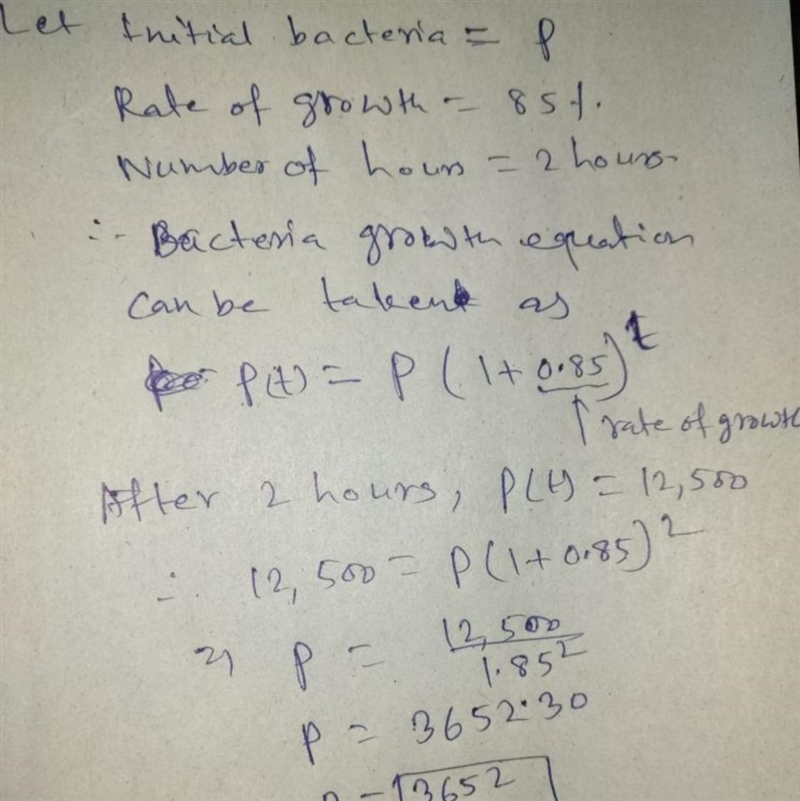 Let Initial bacteria = P
Rate of growth = 85%.
Number of hours = 2 hours.
∴ Bacteria growth equation
can be taken as
P(t) = P (1 + 0.85)^t
↑ rate of growth
After 2 hours, P(t) = 12,500
∴ 12,500 = P(1 + 0.85)^2
⇒ P = 12,500 / 1.85^2
P = 3652.30
P = 3652